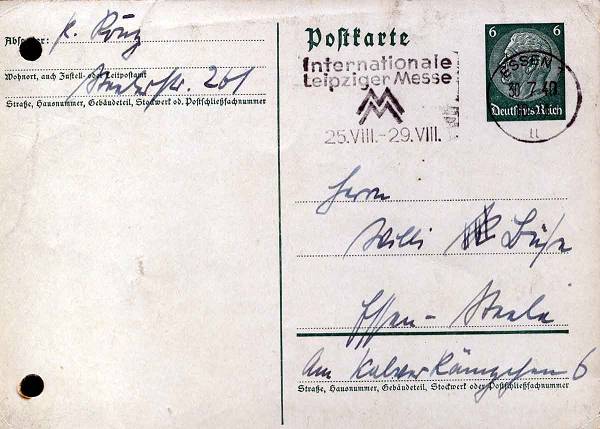 Absender:
Wohnort, auch Zustell- oder Leitpostamt
Steelerstr. 261
Straße, Hausnummer, Gebäudeteil, Stockwerk od. Postschließfachnummer
Postkarte
Internationale
Leipziger Messe
MM
25.VIII.-29.VIII.
6 6
Deutsches Reich
ESSEN
30.7.40
Herrn
Willi
Essen-Steele
Am
6
Straße, Hausnummer, Gebäudeteil, Stockwerk oder Postschließfachnummer